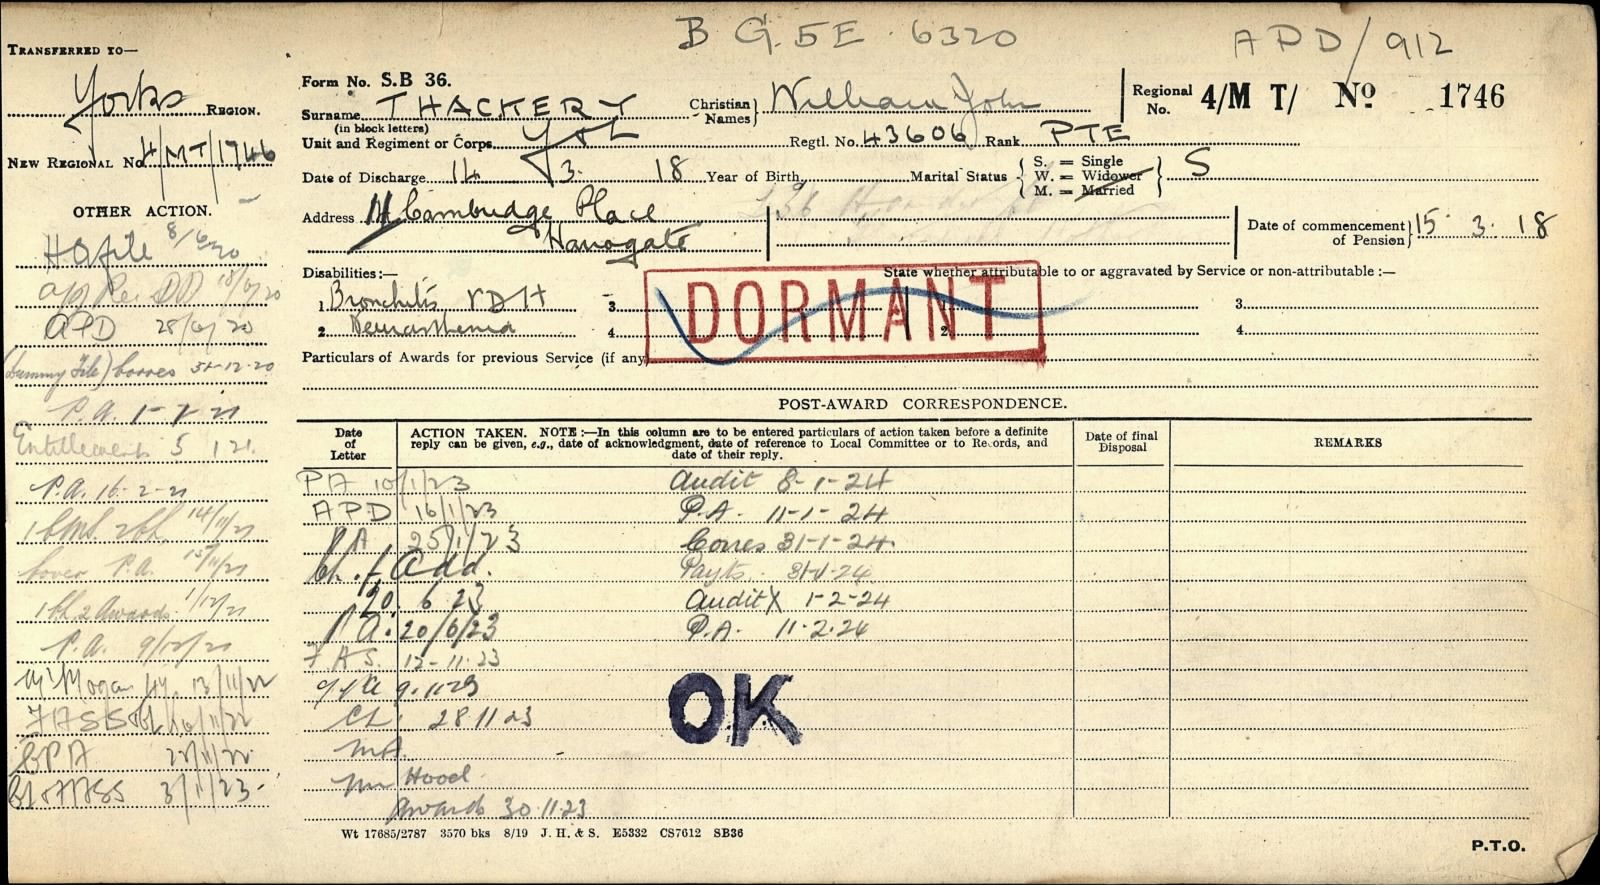 B G. 5 E. 6320
APD/912
TRANSFERRED TO—
Yorks REGION.
NEW REGIONAL No. 4/MT/1746
OTHER ACTION.
8/6/20
APD 28/ /20
(Dummy File) 31-12-20
P.A. 1-2-21
Entitlements 5 1 21.
P.A. 16-2-21
14/11/21
P.A. 15/11/21
2 Awards 1/12/21
P.A. 9/12/21
13/11/22
3/1/23.
Form No. S.B 36.
Surname THACKERY
(in block letters)
Christian Names} William John
Regional No. 4/M T/ No 1746
Unit and Regiment or Corps
Regtl. No. 43606 Rank PTE
Date of Discharge 14 3. 18 Year of Birth Marital Status { S. = Single W. = Widower M. = Married } S
Address 14 Cambridge Place
Harrogate
Date of commencement of Pension} 15. 3. 18
Disabilities:—
State whether attributable to or aggravated by Service or non-attributable :—
1. Bronchitis VDH 3. 1. 3.
2. Neurasthenia 4. 2. 4.
DORMANT
Particulars of Awards for previous Service (if any)
POST-AWARD CORRESPONDENCE.
Date of Letter
ACTION TAKEN. NOTE :—In this column are to be entered particulars of action taken before a definite
reply can be given, e.g., date of acknowledgment, date of reference to Local Committee or to Records, and
date of their reply.
Date of final Disposal
REMARKS
PA 10/1/23 Audit 8-1-24
APD 16/1/23 P.A. 11-1-24
PA 25/1/23 Corres 31-1-24.
Ch. of Add. Payts.
20. 6 23 Audit X 1-2-24
P.A. 20/6/23 P.A. 11.2.24
12-11.23
28 11 23
OK
MA.
Mr Hood
Awards 30.11.23
Wt 17685/2787 3570 bks 8/19 J. H. & S. E5332 CS7612 SB36
P.T.O.